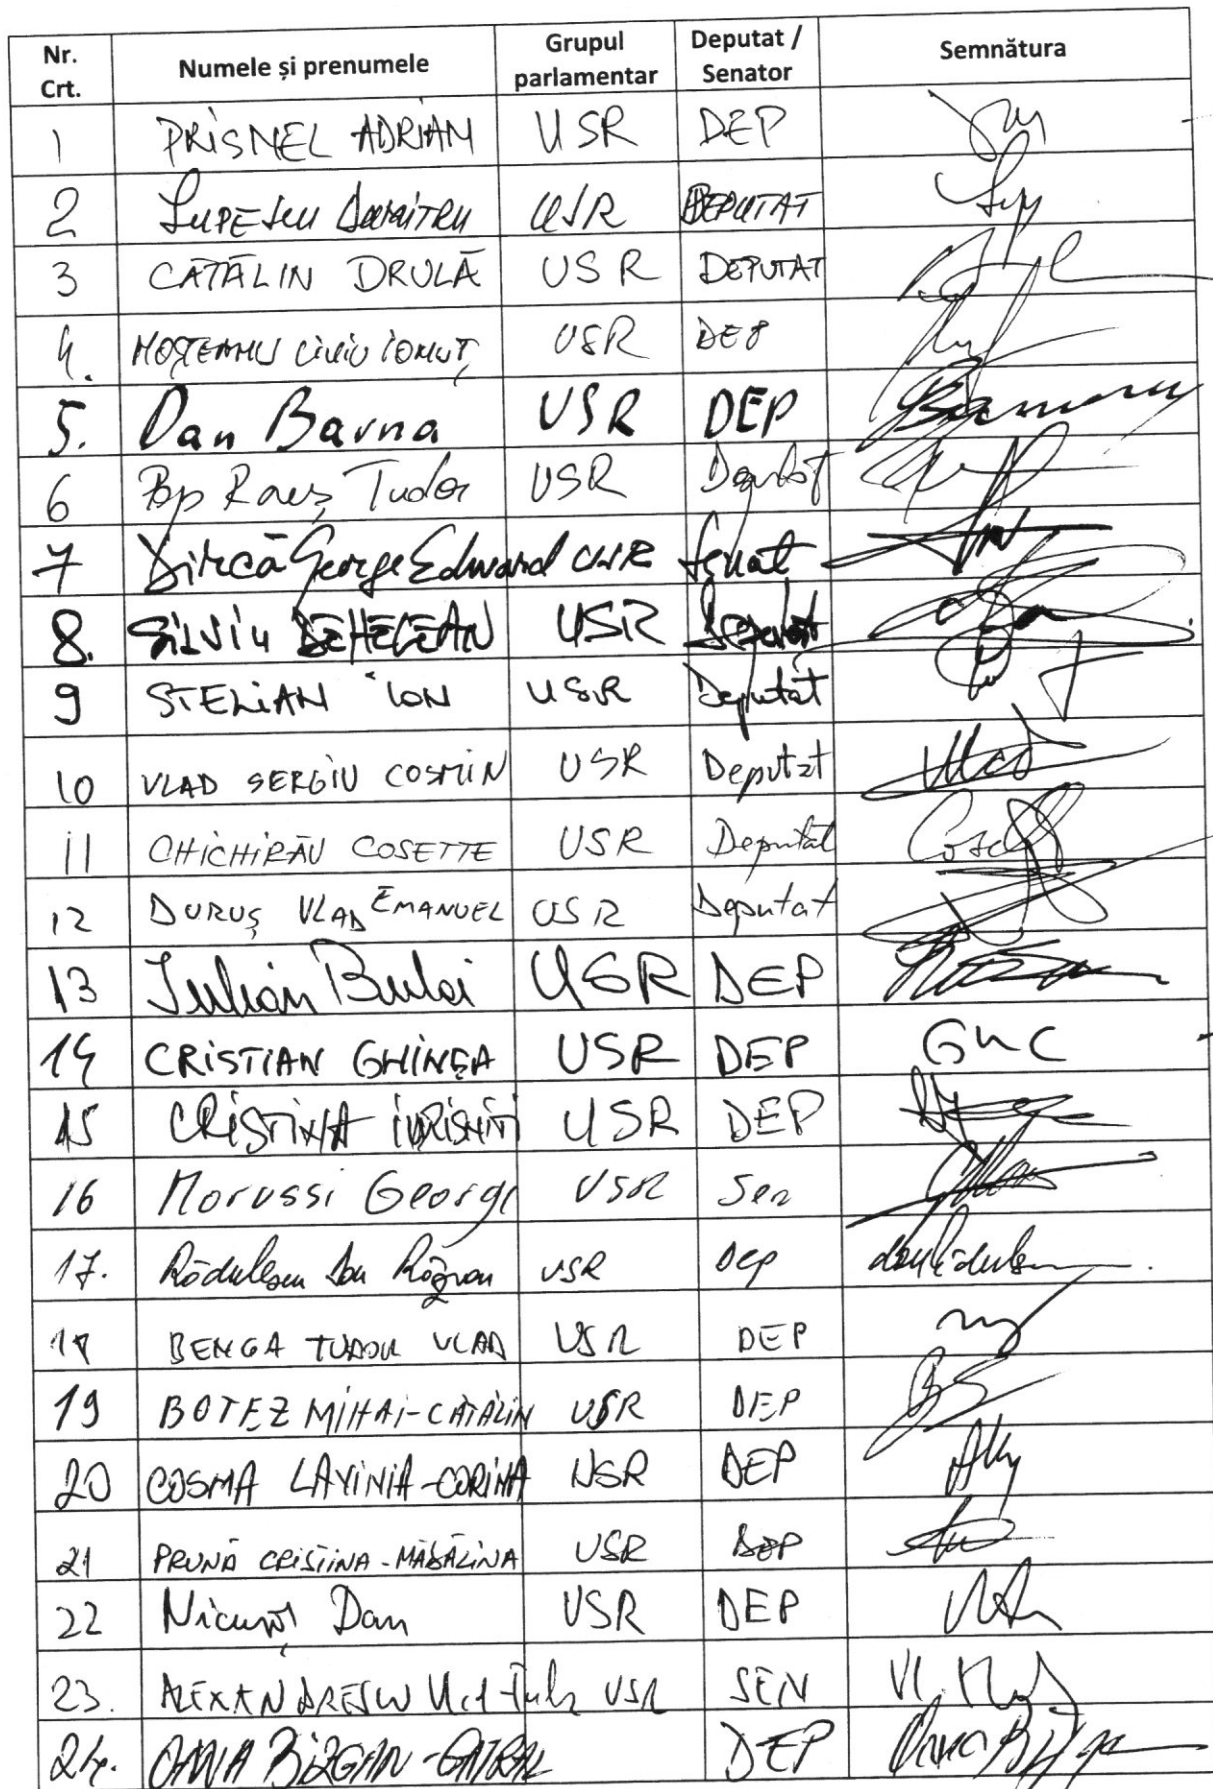 Nr. Crt. Numele și prenumele Grupul parlamentar Deputat / Senator Semnătura
1 PRISNEL ADRIAN USR DEP
2 LUPESCU DUMITRU USR DEPUTAT
3 CĂTĂLIN DRULĂ USR DEPUTAT
4. MOȘTEANU LIVIU IONUȚ USR DEP
5. Dan Barna USR DEP
6 Pop Rareș Tudor USR Deputat
7 Dircă George Edward USR Senat
8. SILVIU DEHELEAN USR Deputat
9 STELIAN ION USR Deputat
10 VLAD SERGIU COSMIN USR Deputat
11 CHICHIRĂU COSETTE USR Deputat
12 DURUȘ VLAD EMANUEL USR Deputat
13 Iulian Bulai USR DEP
14 CRISTIAN GHINEA USR DEP GhC
15 CRISTINA IURIȘNIȚI USR DEP
16 Marussi George USR Sen
17. Rădulescu Dan Răzvan USR Dep
18 BENGA TUDOR VLAD USR DEP
19 BOTEZ MIHAI-CĂTĂLIN USR DEP
20 COSMA LAVINIA-CORINA USR DEP
21 PRUNĂ CRISTINA-MĂDĂLINA USR DEP
22 Nicușor Dan USR DEP
23. ALEXANDRESCU USR SEN
24. OANA BÎZGAN-GAYRAL DEP